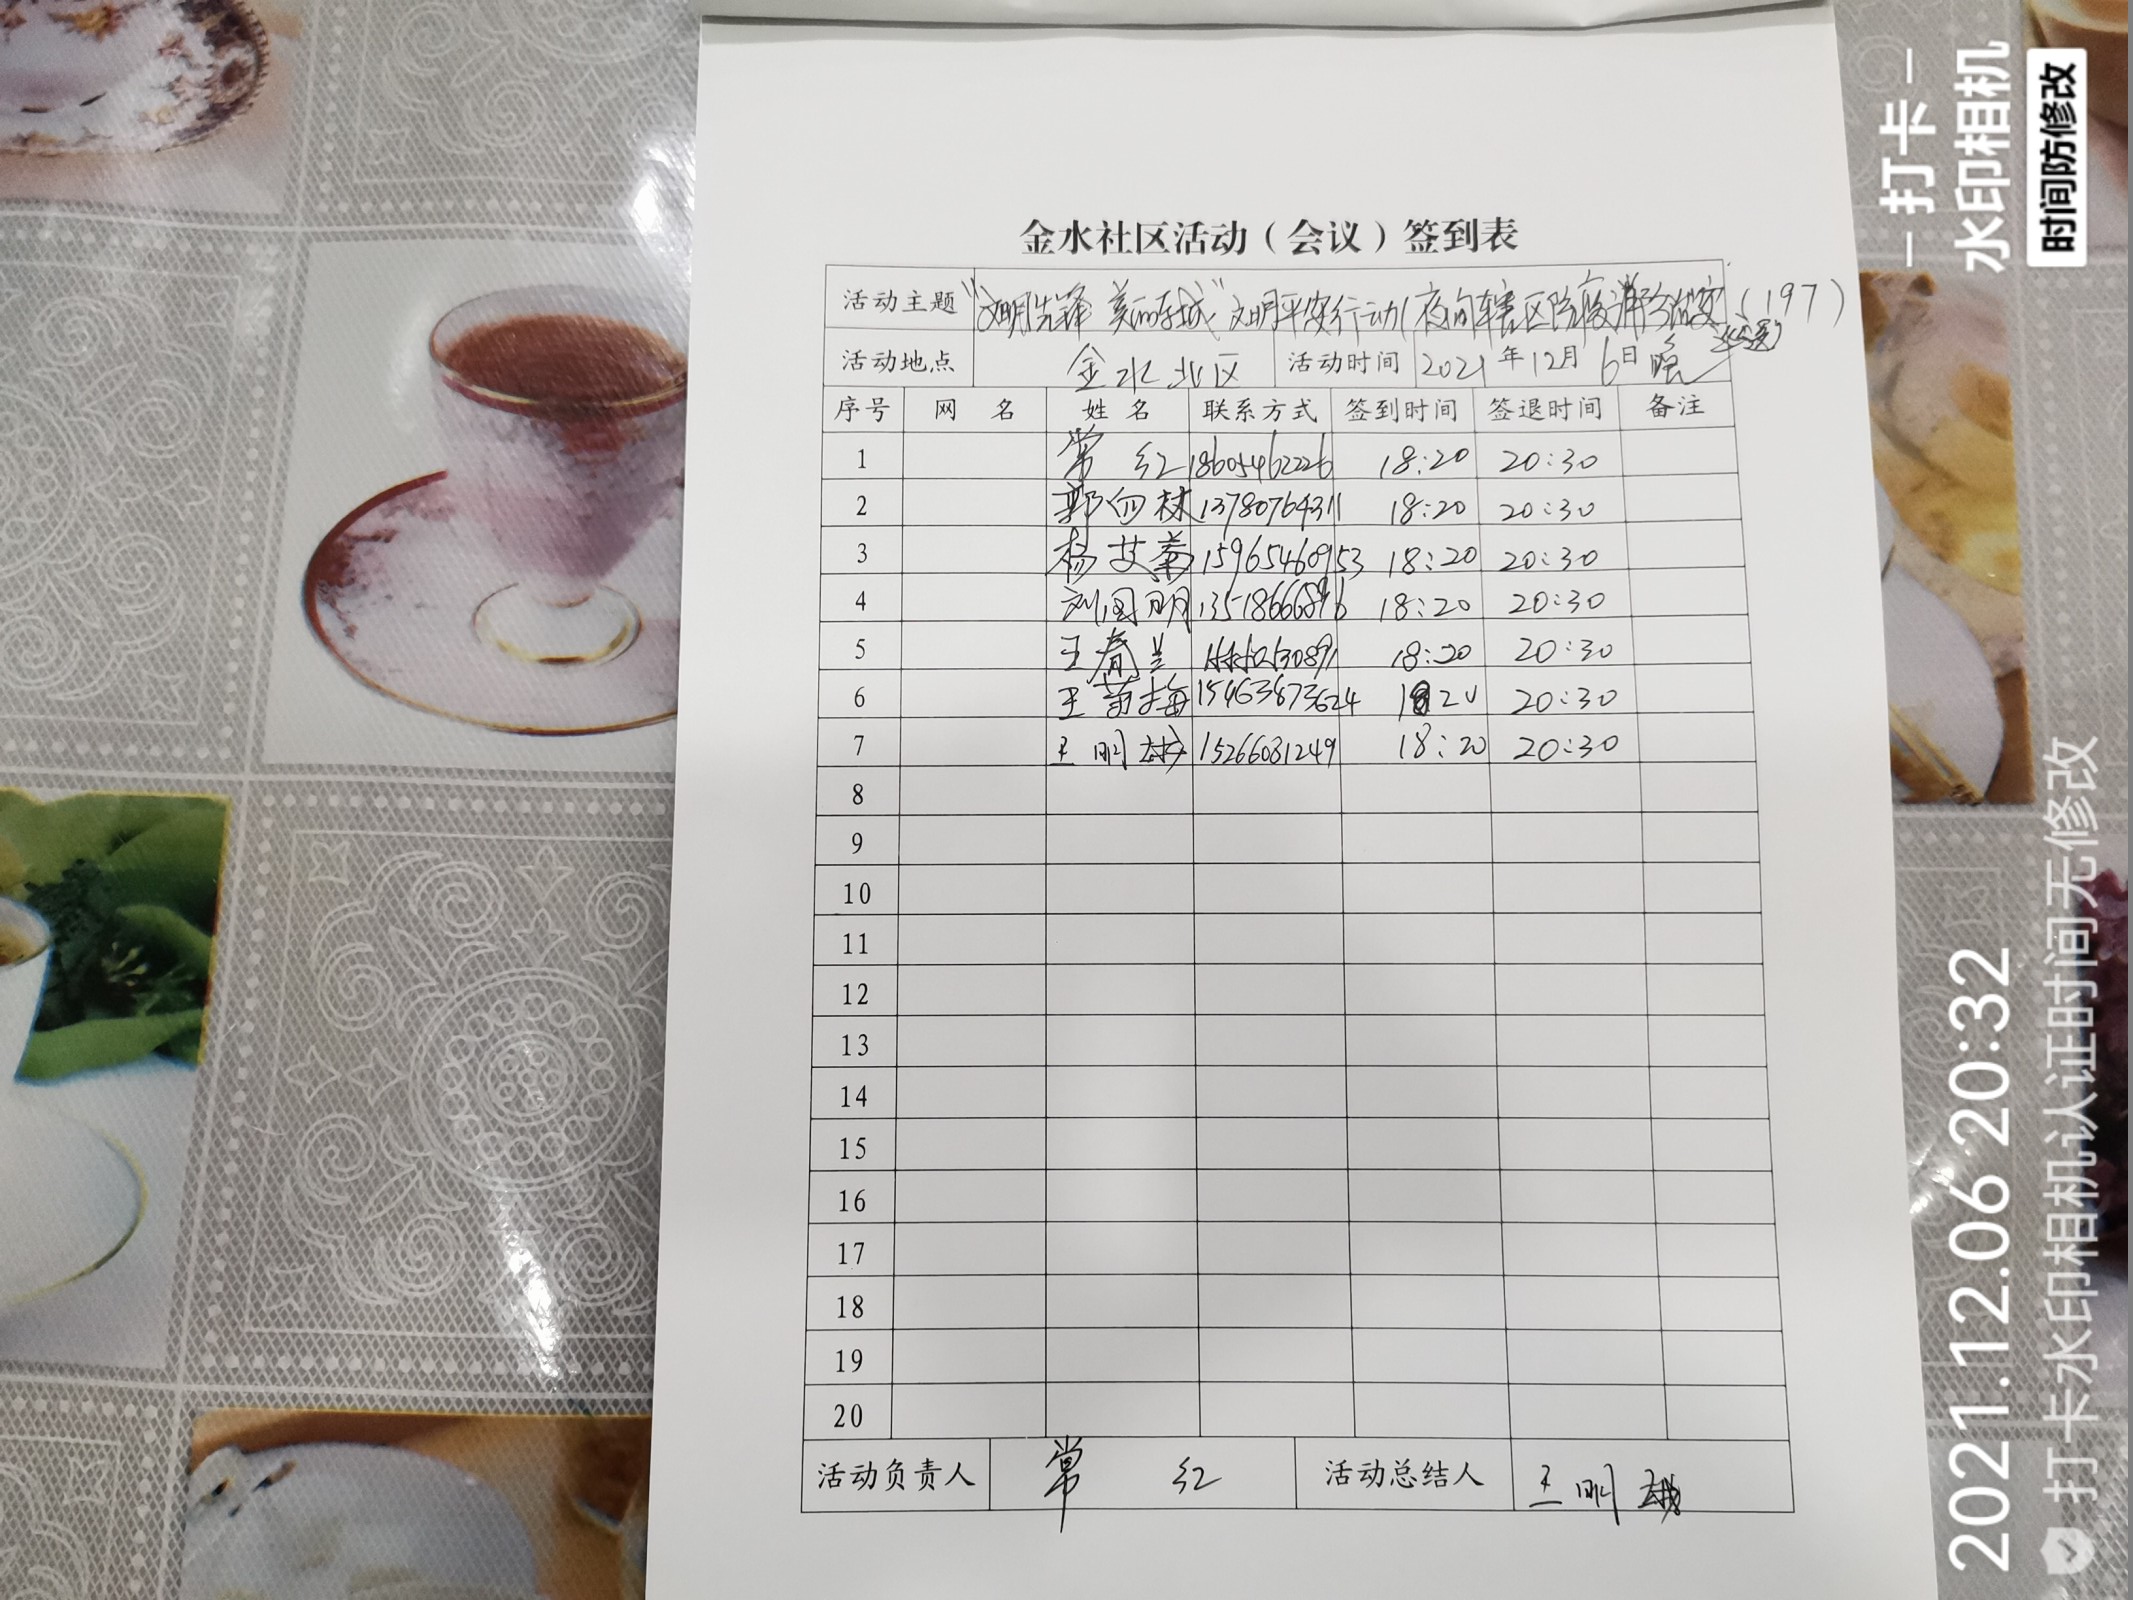 金水社区活动（会议）签到表
活动主题 “文明先锋 美丽东城”文明平安行动（夜间辖区防 (197)
活动地点 金水北区 活动时间 2021年12月6日晚
序号 网 名 姓 名 联系方式 签到时间 签退时间 备注
1 常 红 18605462226 18:20 20:30
2 郭 林 13780764311 18:20 20:30
3 杨艾菊 15965460953 18:20 20:30
4 刘国明 18:20 20:30
5 王春兰 18:20 20:30
6 王菊梅 15463673624 1820 20:30
7 王明 15266081249 18:20 20:30
8
9
10
11
12
13
14
15
16
17
18
19
20
活动负责人 常 红 活动总结人 王明
打卡
水印相机
时间防修改
2021.12.06 20:32
打卡水印相机认证时间无修改